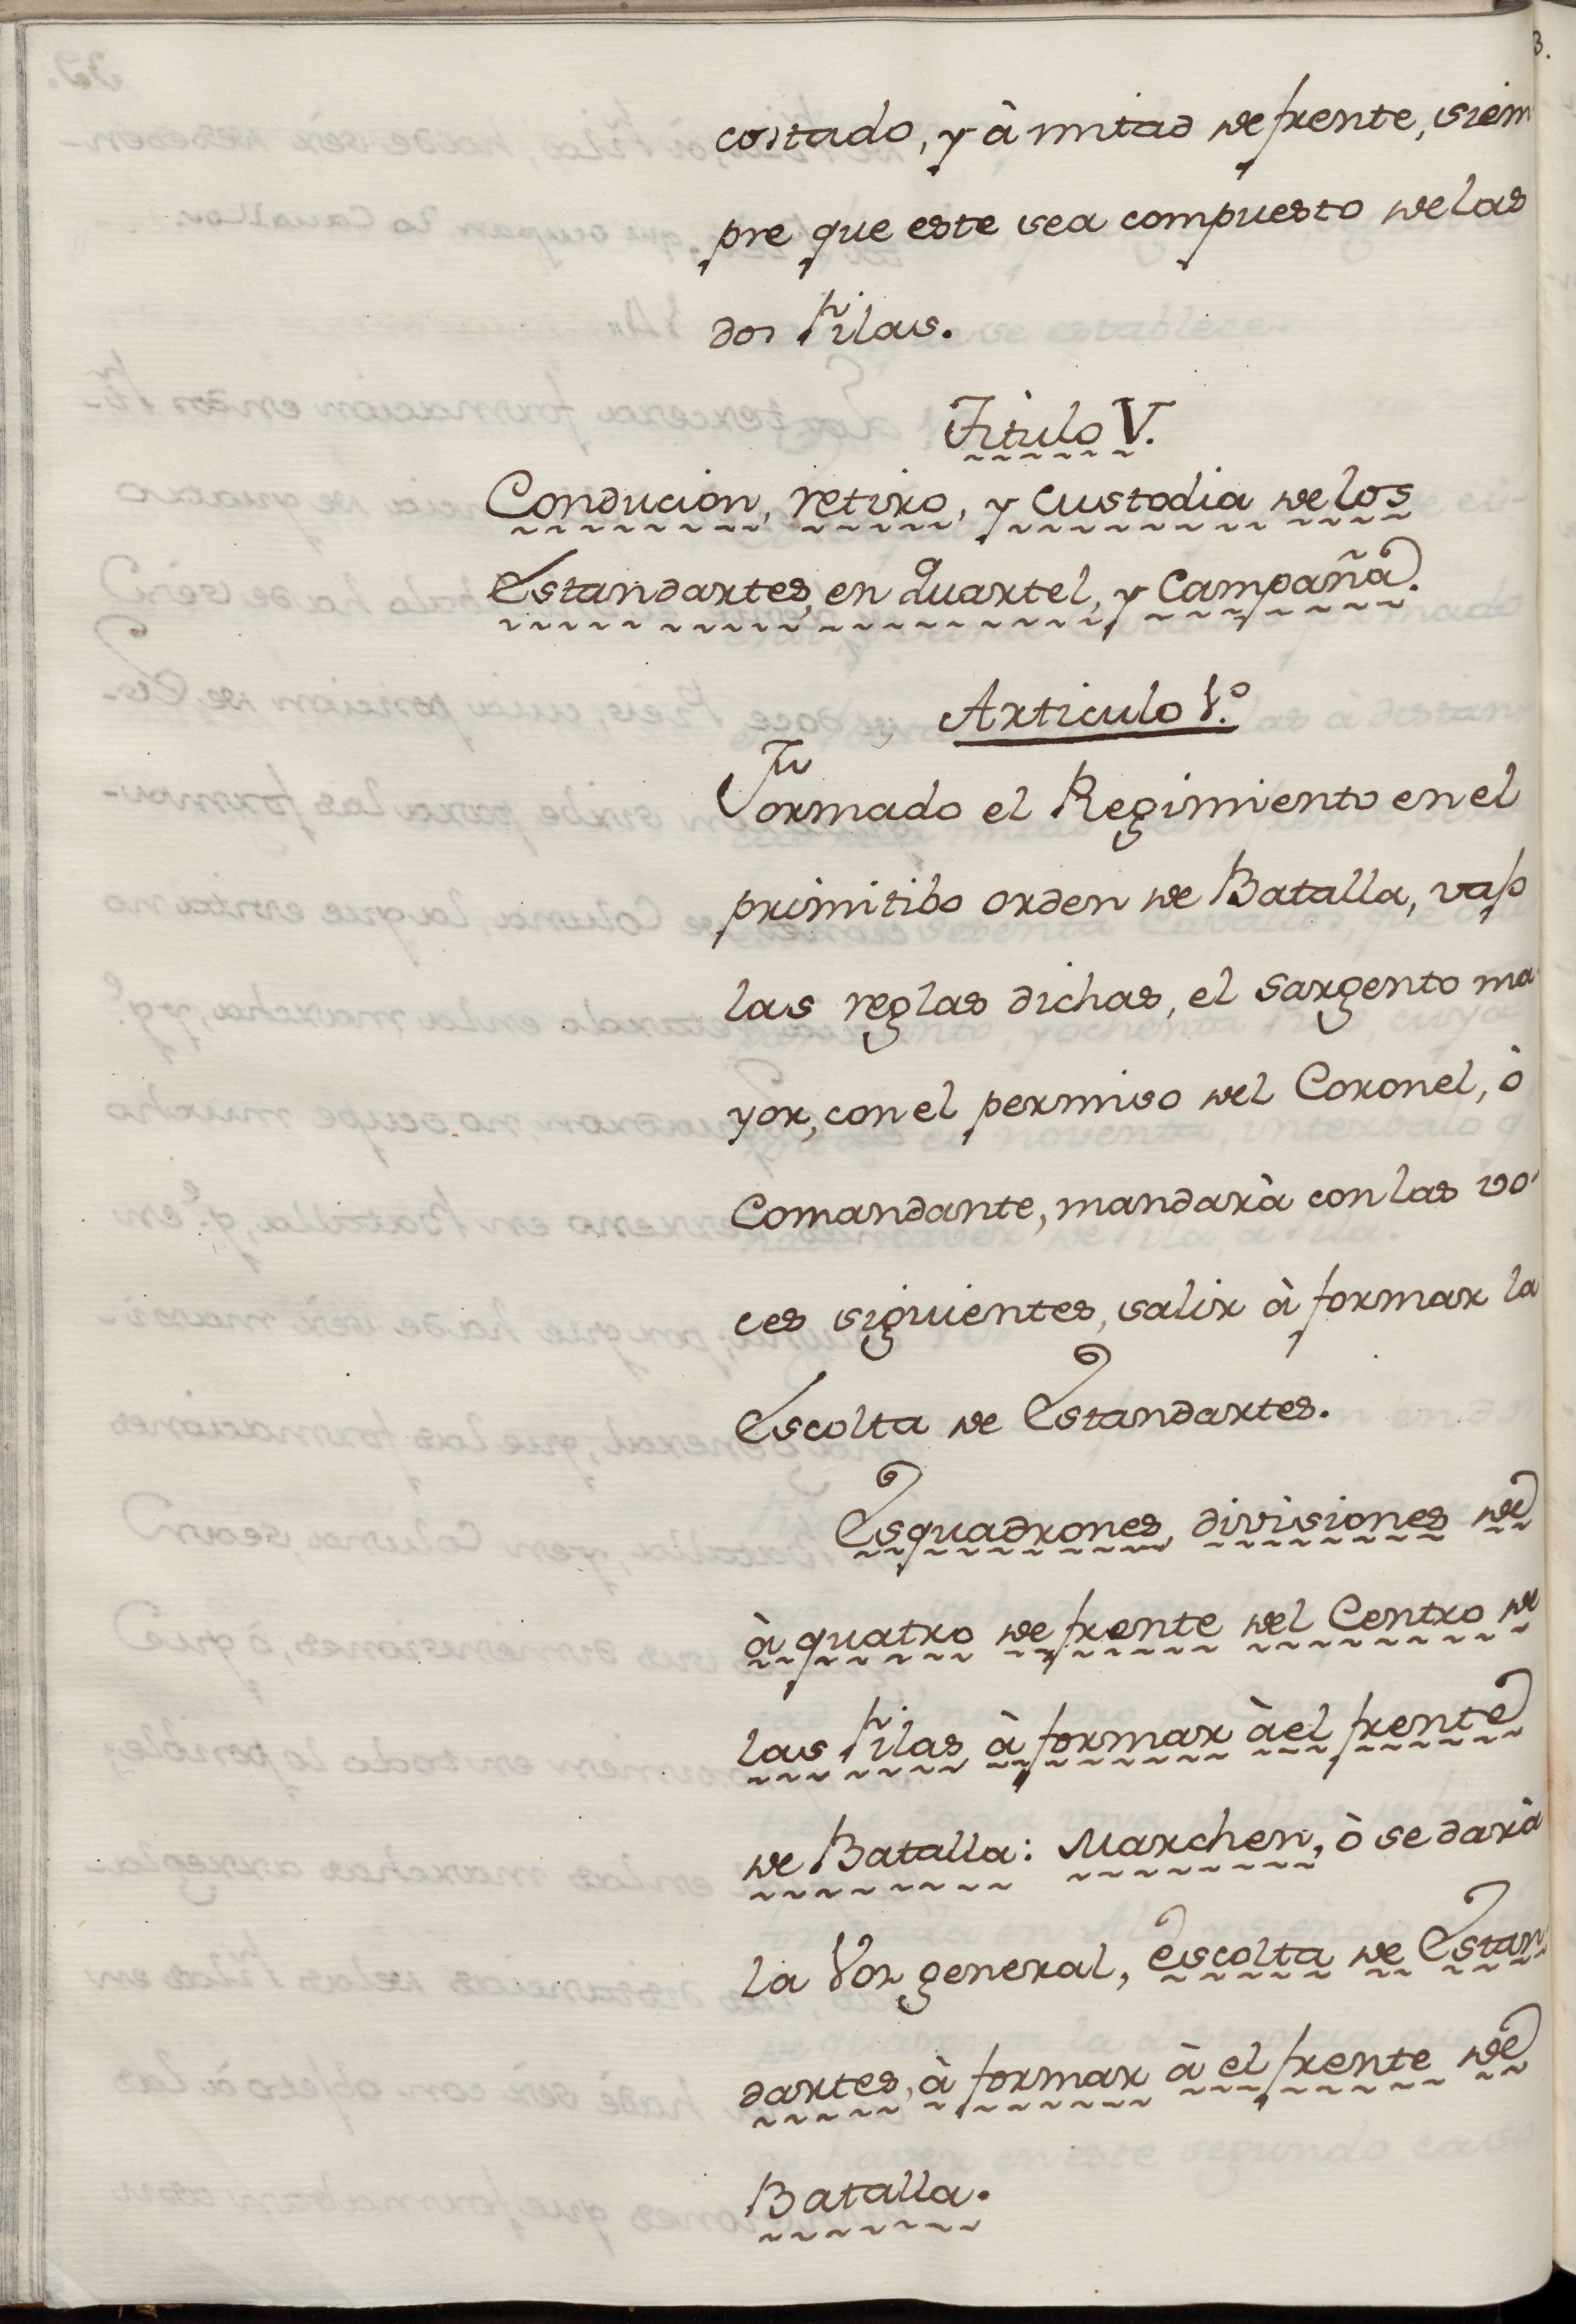 costado, y à mitad de frente, siem
pre que este sea compuesto de las
dos Filas.
Titulo V.
Conducion, retiro, y Custodia de los
Estandartes, en Quartel, y Campaña.
Articulo 1.º
Formado el Regimiento en el
primitibo orden de Batalla, vajo
las reglas dichas, el Sargento ma
yor, con el permiso del Coronel, ò
Comandante, mandarà con las vo
ces siguientes, salir à formar la
Escolta de Estandartes.
Esquadrones, divisiones de
à quatro de frente del Centro de
las Filas, à formar à el frente
de Batalla: Marchen, ò se darà
la Voz general, escolta de Estan
dartes, à formar à el frente de
Batalla.